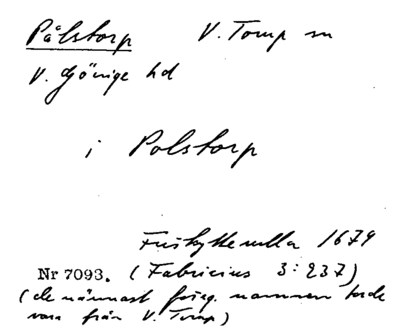 Pålstorp V. Torup sn
V. Göinge hd
i Polstorp
Friskytterulla 1679
Nr 7093. (Fabricius 3:237)
(de närmast föreg. namnen torde
vara från V. Torup)